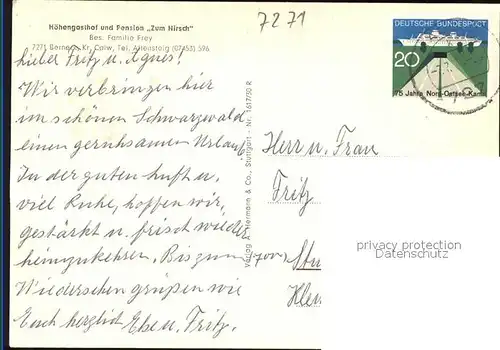 Höhengasthof und Pension „Zum Hirsch"
Bes. Familie Frey
7271 Berneck Kr. Calw, Tel. Altensteig (07453) 596
7271
DEUTSCHE BUNDESPOST
20
75 Jahre Nord-Ostsee-Kanal
Lieber Fritz u. Agnes!
Wir verbringen hier
im schönen Schwarzwald
einen geruhsamen Urlaub.
In der guten Luft u.
viel Ruhe, hoffen wir,
gestärkt u. frisch wieder
heimzukehren. Bis zum
Wiedersehen grüßen wie
Euch herzlich u. Fritz.
Verlag & Co., Stuttgart - Nr. 1617750 R
Herrn u. Frau
Fritz
privacy protection
Datenschutz